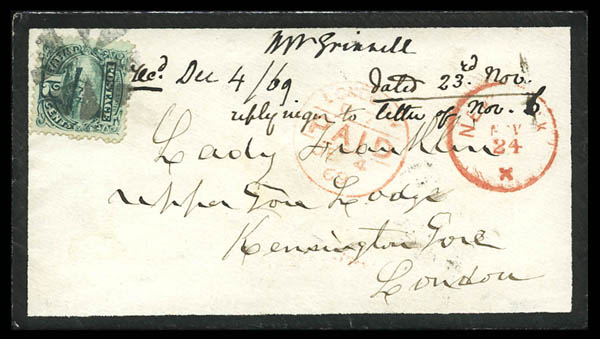 Mr Grinnell
recd Dec 4/69 dated 23rd Nov.
replying to letter of Nov. 6
Lady Franklin
Upper Gore Lodge
Kensington Gore
London
PAID
NOV
24
POSTAGE